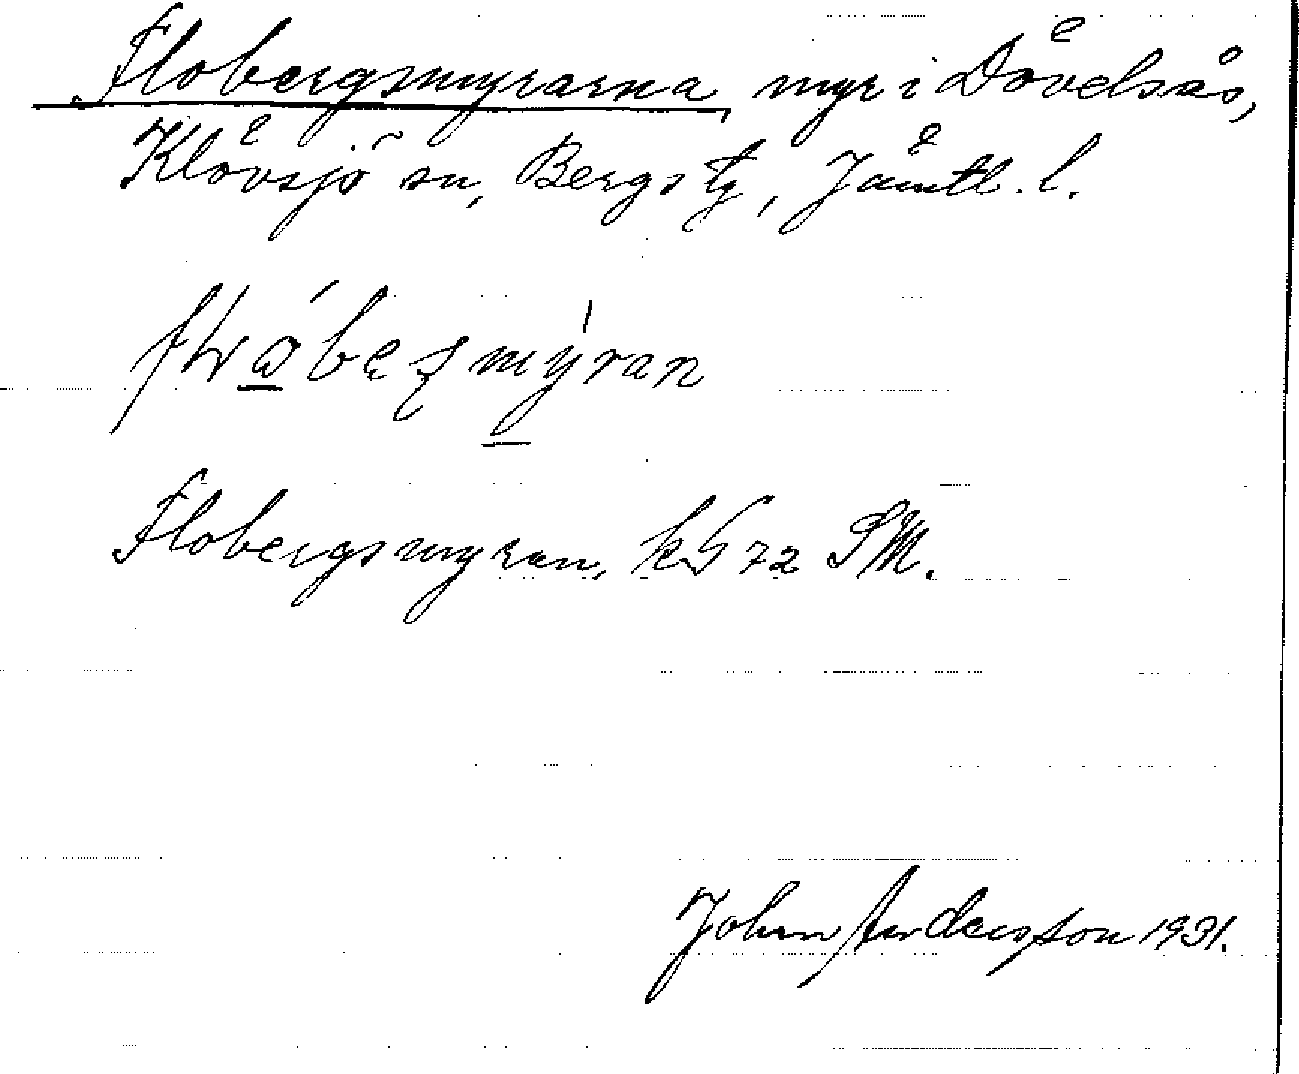 Flobergsmyrarna, myr i Dövelsås,
Klövsjö sn, Bergs tg, Jämtl. l.
Flobergsmyran, kS 72 SM.
John Andersson 1931.